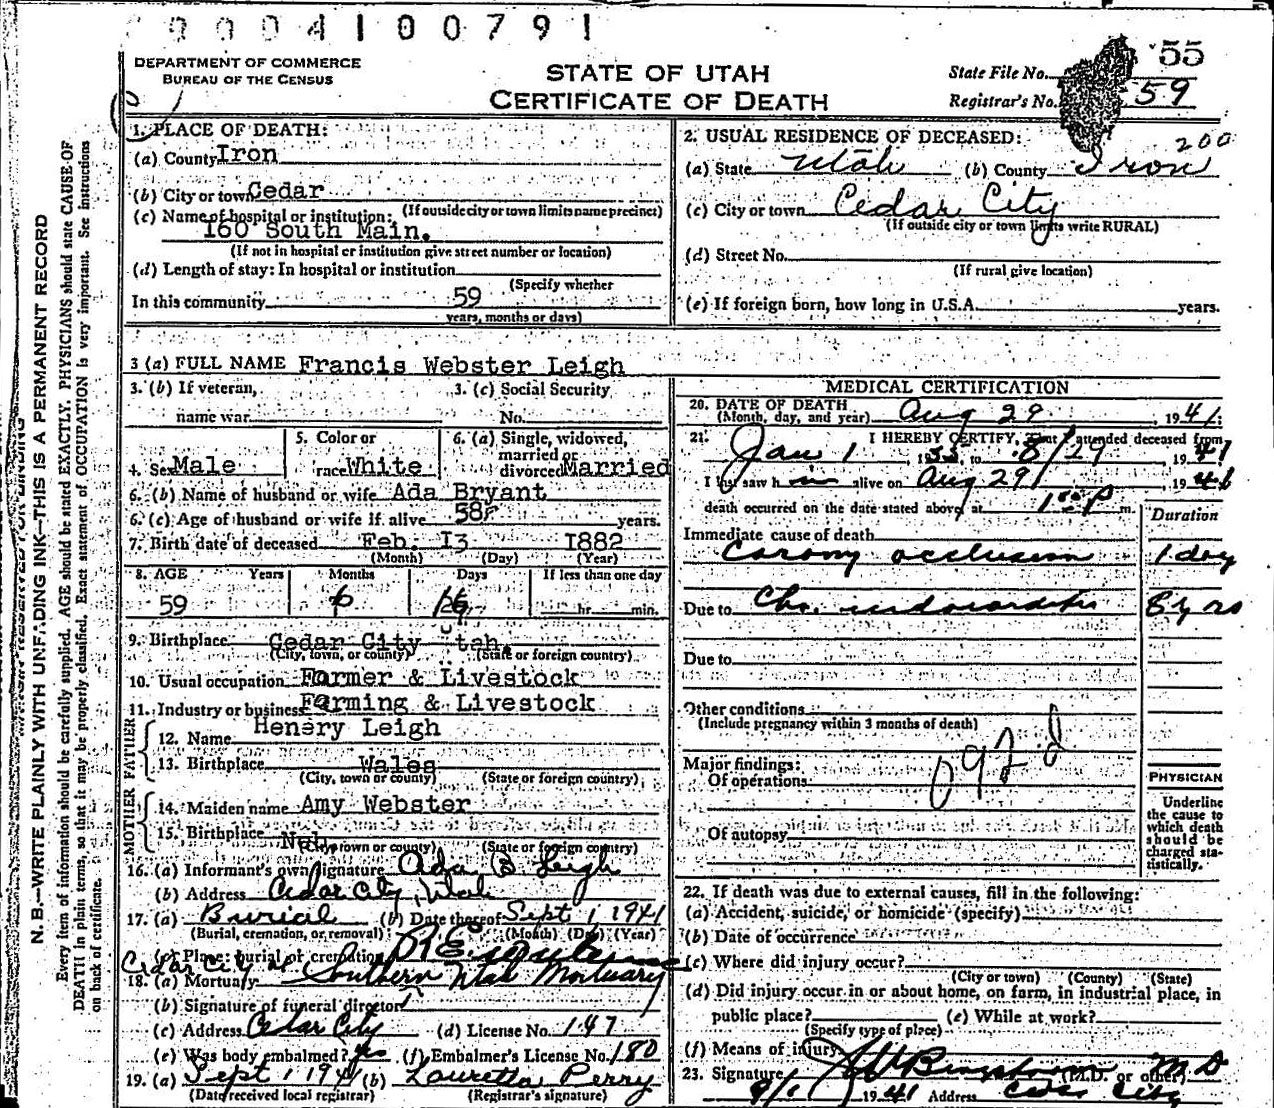 0004100791
DEPARTMENT OF COMMERCE
BUREAU OF THE CENSUS
STATE OF UTAH
CERTIFICATE OF DEATH
State File No. 55
Registrar's No. 59
1. PLACE OF DEATH:
(a) County Iron
(b) City or town Cedar
(If outside city or town limits name precinct)
(c) Name of hospital or institution:
160 South Main.
(If not in hospital or institution give street number or location)
(d) Length of stay: In hospital or institution
(Specify whether
In this community 59
years, months or days)
2. USUAL RESIDENCE OF DECEASED:
200
(a) State Utah (b) County Iron
(c) City or town Cedar City
(If outside city or town limits write RURAL)
(d) Street No.
(If rural give location)
(e) If foreign born, how long in U.S.A. years.
3 (a) FULL NAME Francis Webster Leigh
3. (b) If veteran, 3. (c) Social Security
name war No.
4. Sex Male
5. Color or race White
6. (a) Single, widowed, married or divorced Married
6. (b) Name of husband or wife Ada Bryant
6. (c) Age of husband or wife if alive 58 years.
7. Birth date of deceased Feb. 13 1882
(Month) (Day) (Year)
8. AGE Years Months Days If less than one day
59 6 16 hr. min.
9. Birthplace Cedar City Utah
(City, town, or county) (State or foreign country)
10. Usual occupation Farmer & Livestock
11. Industry or business Farming & Livestock
FATHER
12. Name Henery Leigh
13. Birthplace Wales
(City, town or county) (State or foreign country)
MOTHER
14. Maiden name Amy Webster
15. Birthplace
(City, town or county) (State or foreign country)
16. (a) Informant's own signature Ada B Leigh
(b) Address Cedar City, Utah
17. (a) Burial (b) Date thereof Sept 1, 1941
(Burial, cremation, or removal) (Month) (Day) (Year)
(c) Place: burial or cremation
Cedar City
18. (a) Mortuary Southern Utah Mortuary
(b) Signature of funeral director
(c) Address Cedar City (d) License No. 147
(e) Was body embalmed? yes (f) Embalmer's License No. 180
19. (a) Sept 1 1941 (b) Lauretta Perry
(Date received local registrar) (Registrar's signature)
MEDICAL CERTIFICATION
20. DATE OF DEATH
(Month, day, and year) Aug 29, 1941
21. I HEREBY CERTIFY, That I attended deceased from
Jan 1, 1935, to 8/29, 1941
I last saw him alive on Aug 29, 1941
death occurred on the date stated above, at 1 00 P m.
Duration
Immediate cause of death
Corony occlusion 1 day
Due to Chr. 8 yrs
Due to
Other conditions
(Include pregnancy within 3 months of death)
Major findings:
Of operations
Of autopsy
PHYSICIAN
Underline
the cause to
which death
should be
charged sta-
tistically.
22. If death was due to external causes, fill in the following:
(a) Accident, suicide, or homicide (specify)
(b) Date of occurrence
(c) Where did injury occur?
(City or town) (County) (State)
(d) Did injury occur in or about home, on farm, in industrial place, in
public place? (e) While at work?
(Specify type of place)
(f) Means of injury
23. Signature M D
(M.D. or other)
9/1 1941 Address Cedar City
N. B.—WRITE PLAINLY WITH UNFADING INK—THIS IS A PERMANENT RECORD
Every item of information should be carefully supplied. AGE should be stated EXACTLY. PHYSICIANS should state CAUSE OF
DEATH in plain terms, so that it may be properly classified. Exact statement of OCCUPATION is very important. See Instructions
on back of certificate.